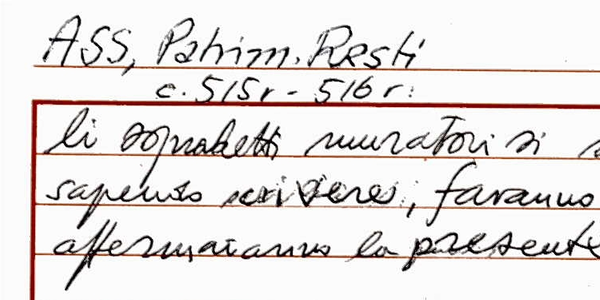 ASS, Patrim. Resti
c. 515r - 516r.
li sopradetti muratori si
sapendo scrivere, faranno
affermaranno la presente